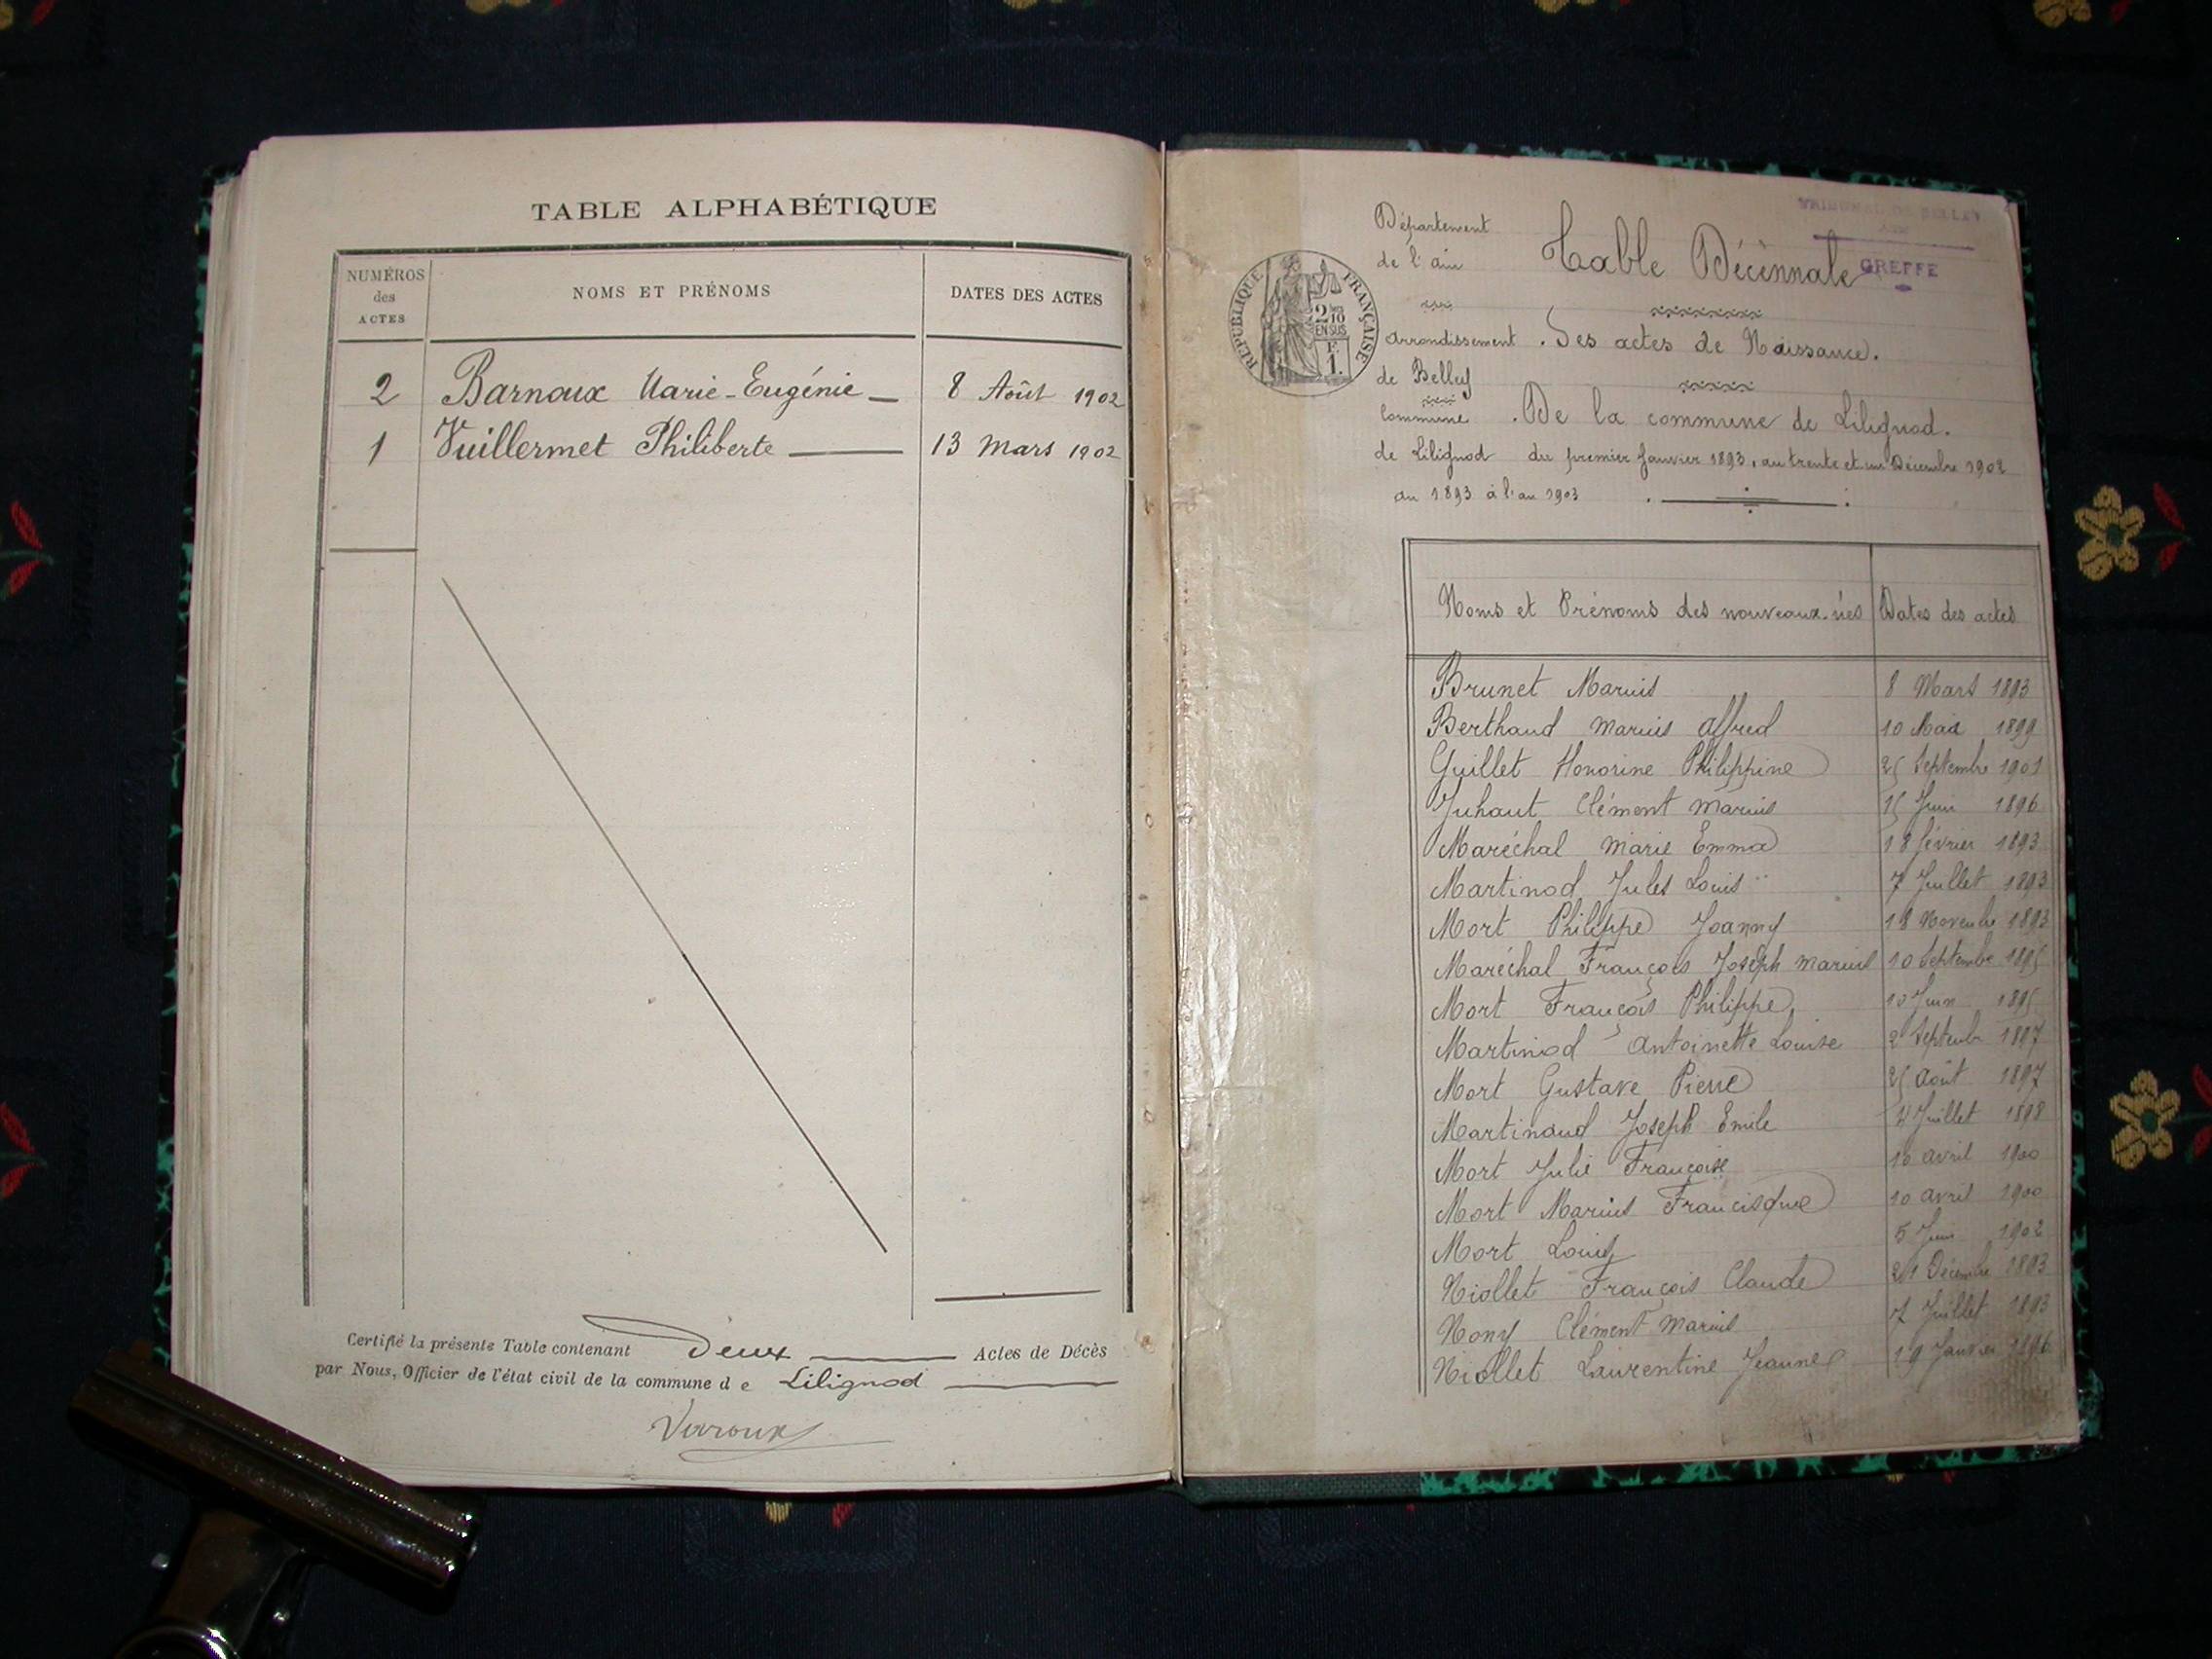 TABLE ALPHABÉTIQUE
NUMÉROS des ACTES NOMS ET PRÉNOMS DATES DES ACTES
2 Barnoux Marie-Eugénie 8 Août 1902
1 Vuillermet Philiberte 13 Mars 1902
Certifié la présente Table contenant Deux Actes de Décès
par Nous, Officier de l'état civil de la commune de Lilignod
Verroux
TRIBUNAL DE BELLEY
GREFFE
RÉPUBLIQUE FRANÇAISE
2/10
EN SUS
F
1.
Département
de l'ain
arrondissement
de Belley
Commune
de Lilignod
an 1893 à l'an 1903
Table Décennale
Des actes de Naissance.
De la commune de Lilignod.
du premier Janvier 1893, au trente et un Décembre 1902
Noms et Prénoms des nouveaux-nés Dates des actes
Brunet Marius 8 Mars 1893
Berthaud Marius Alfred 10 Mai 1899
Guillet Honorine Philippine 25 Septembre 1901
Juhaut Clément Marius 15 Juin 1896
Maréchal Marie Emma 18 février 1893
Martinod Jules Louis 7 Juillet 1893
Mort Philippe Joanny 18 Novembre 1893
Maréchal François Joseph Marius 10 Septembre 1895
Mort François Philippe 10 Juin 1895
Martinod Antoinette Louise 2 Septembre 1897
Mort Gustave Pierre 25 Août 1897
Martinaud Joseph Emile 4 Juillet 1898
Mort Julie Françoise 10 avril 1900
Mort Marius Francisque 10 avril 1900
Mort Louis 5 Juin 1902
Niollet François Claude 21 Décembre 1893
Nony Clément Marius 7 Juillet 1893
Niollet Laurentine Jeanne 19 Janvier 1896